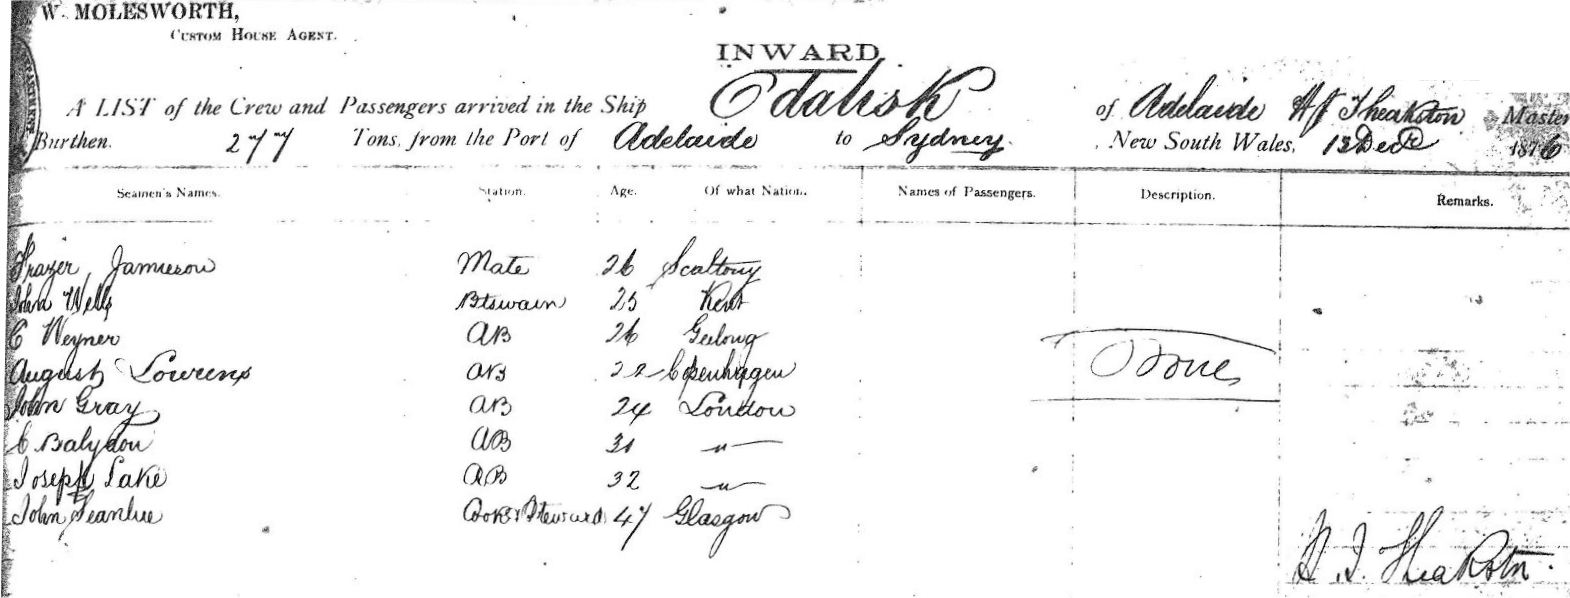 W. MOLESWORTH,
CUSTOM HOUSE AGENT.
INWARD
A LIST of the Crew and Passengers arrived in the Ship Odalisk of Adelaide H J Theakston Master
Burthen. 277 Tons, from the Port of Adelaide to Sydney. New South Wales, Dec 1876
Seamen's Names. Station. Age. Of what Nation. Names of Passengers. Description. Remarks.
Frazer Jamieson Mate 26
John Wells Btswain 25 Kent
C Weyner AB 26 Geelong
August Lowrens AB 22 Copenhagen
John Gray AB 24 London
C AB 31 -"-
Joseph Lake AB 32 -"-
John Cook & Steward 47 Glasgow
None
H. J. Theakston.